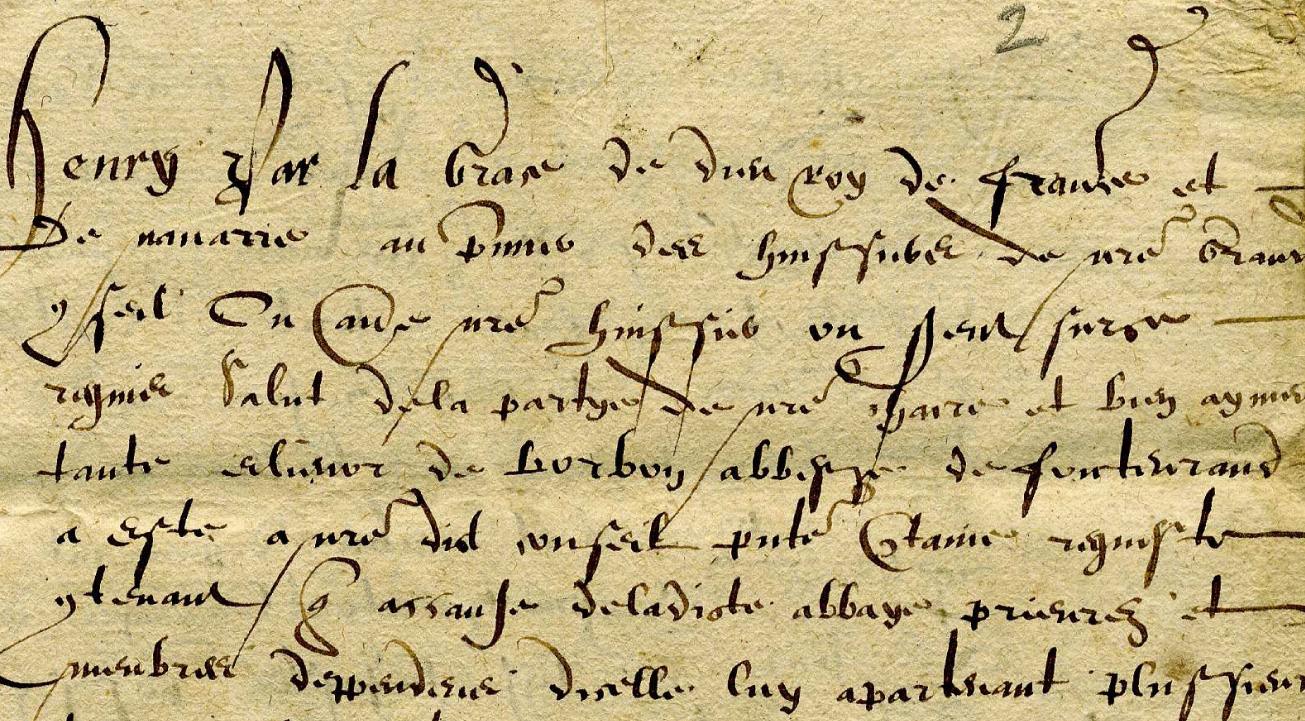 2
Henry Par la Grace de dieu roy de france et
De navarre au p̄mier des huissiers de nr̄e Grand
9seil Ou aūe nr̄e huissier ou sergent sur ce
requis Salut de la partye de nr̄e chaire et bien aymee
tante elienor de borbon abbesse de fontevraud
a este a nr̄e dict conseil pn̄te Certaine requeste
9tenant q̄ a cause de ladicte abbaye prieurez et
menbres deppendens dicelle luy apartenant plussieurs